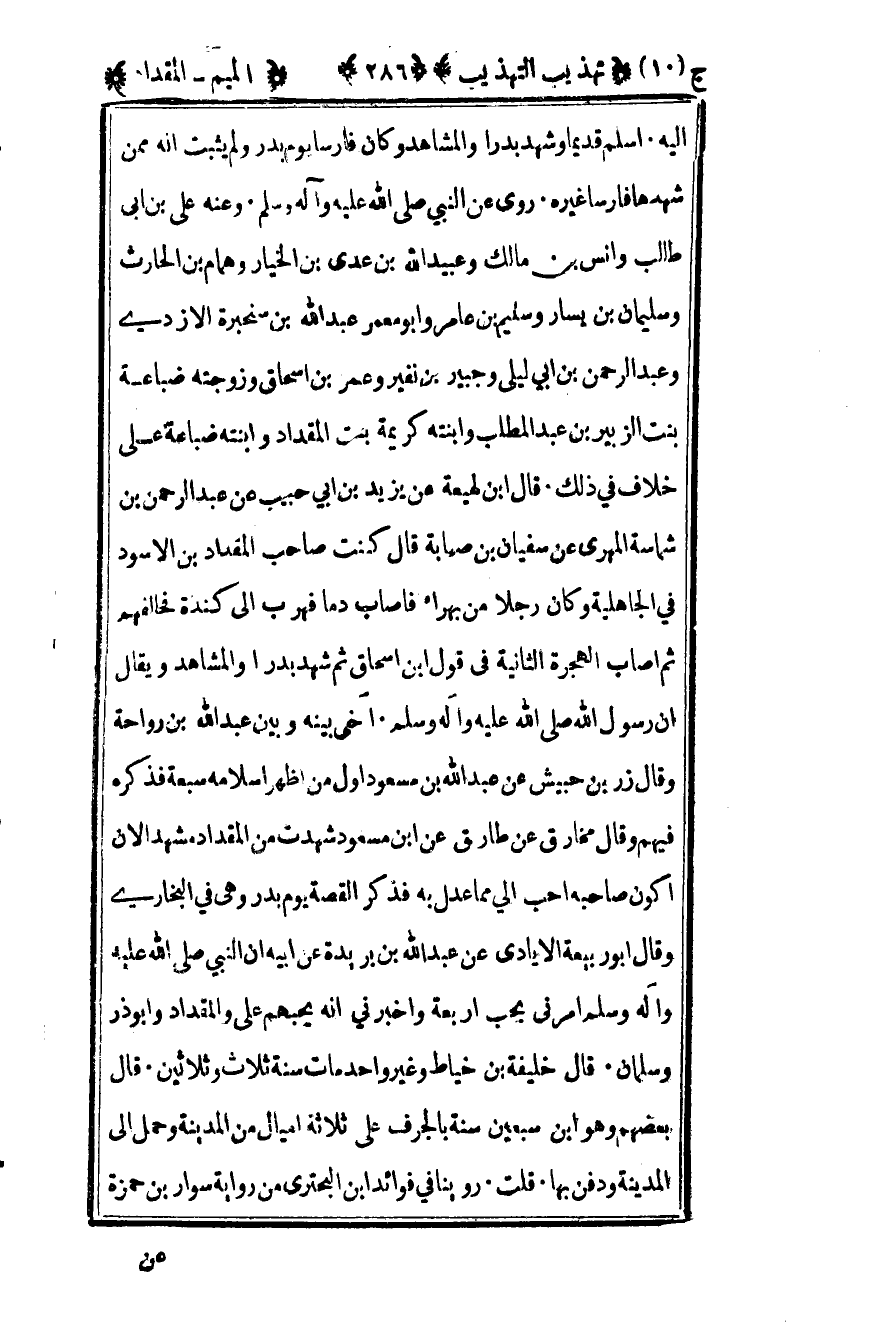 ج (١٠) تهذيب التهذيب ٢٨٦ الميم - المقداد
اليه ٠ اسلم قديما وشهد بدرا والمشاهد وكان فارسا يوم بدر ولم يثبت انه ممن
شهدها فارسا غيره ٠ روى عن النبي صلى الله عليه وآله وسلم ٠ وعنه علي بن ابى
طالب وانس بن مالك وعبيد الله بن عدى بن الخيار وهمام بن الحارث
وسليمان بن يسار وسليم بن عامر وابو معمر عبد الله بن سنحبرة الازدي
وعبد الرحمن بن ابي ليلى وجبير بن نفير وعمر بن اسحاق وزوجته ضباعة
بنت الزبير بن عبد المطلب وابنته كريمة بنت المقداد وابنته ضباعة على
خلاف في ذلك ٠ قال ابن لهيعة عن يزيد بن ابي حبيب عن عبد الرحمن بن
شماسة المهرى عن سفيان بن صهابة قال كنت صاحب المقداد بن الاسود
في الجاهلية وكان رجلا من بهراء فاصاب دما فهرب الى كندة فحالفهم
ثم اصاب الهجرة الثانية فى قول ابن اسحاق ثم شهد بدرا والمشاهد ويقال
ان رسول الله صلى الله عليه وآله وسلم ٠ آخى بينه وبين عبد الله بن رواحة
وقال زر بن حبيش عن عبد الله بن مسعود اول من اظهر اسلامه سبعة فذكره
فيهم وقال مخارق عن طارق عن ابن مسعود شهدت من المقداد مشهدا لان
اكون صاحبه احب الي مما عدل به فذكر القصة يوم بدر وهى في البخاري
وقال ابو ربيعة الايادى عن عبد الله بن بريدة عن ابيه ان النبي صلى الله عليه
وآله وسلم امرنى بحب اربعة واخبرني انه يحبهم على والمقداد وابوذر
وسلمان ٠ قال خليفة بن خياط وغير واحد مات سنة ثلاث وثلاثين ٠ قال
بعضهم وهو ابن سبعين سنة بالجرف على ثلاثة اميال من المدينة وحمل الى
المدينة ودفن بها ٠ قلت ٠ روينا في فوائد ابن البحترى من رواية سوار بن حمزة